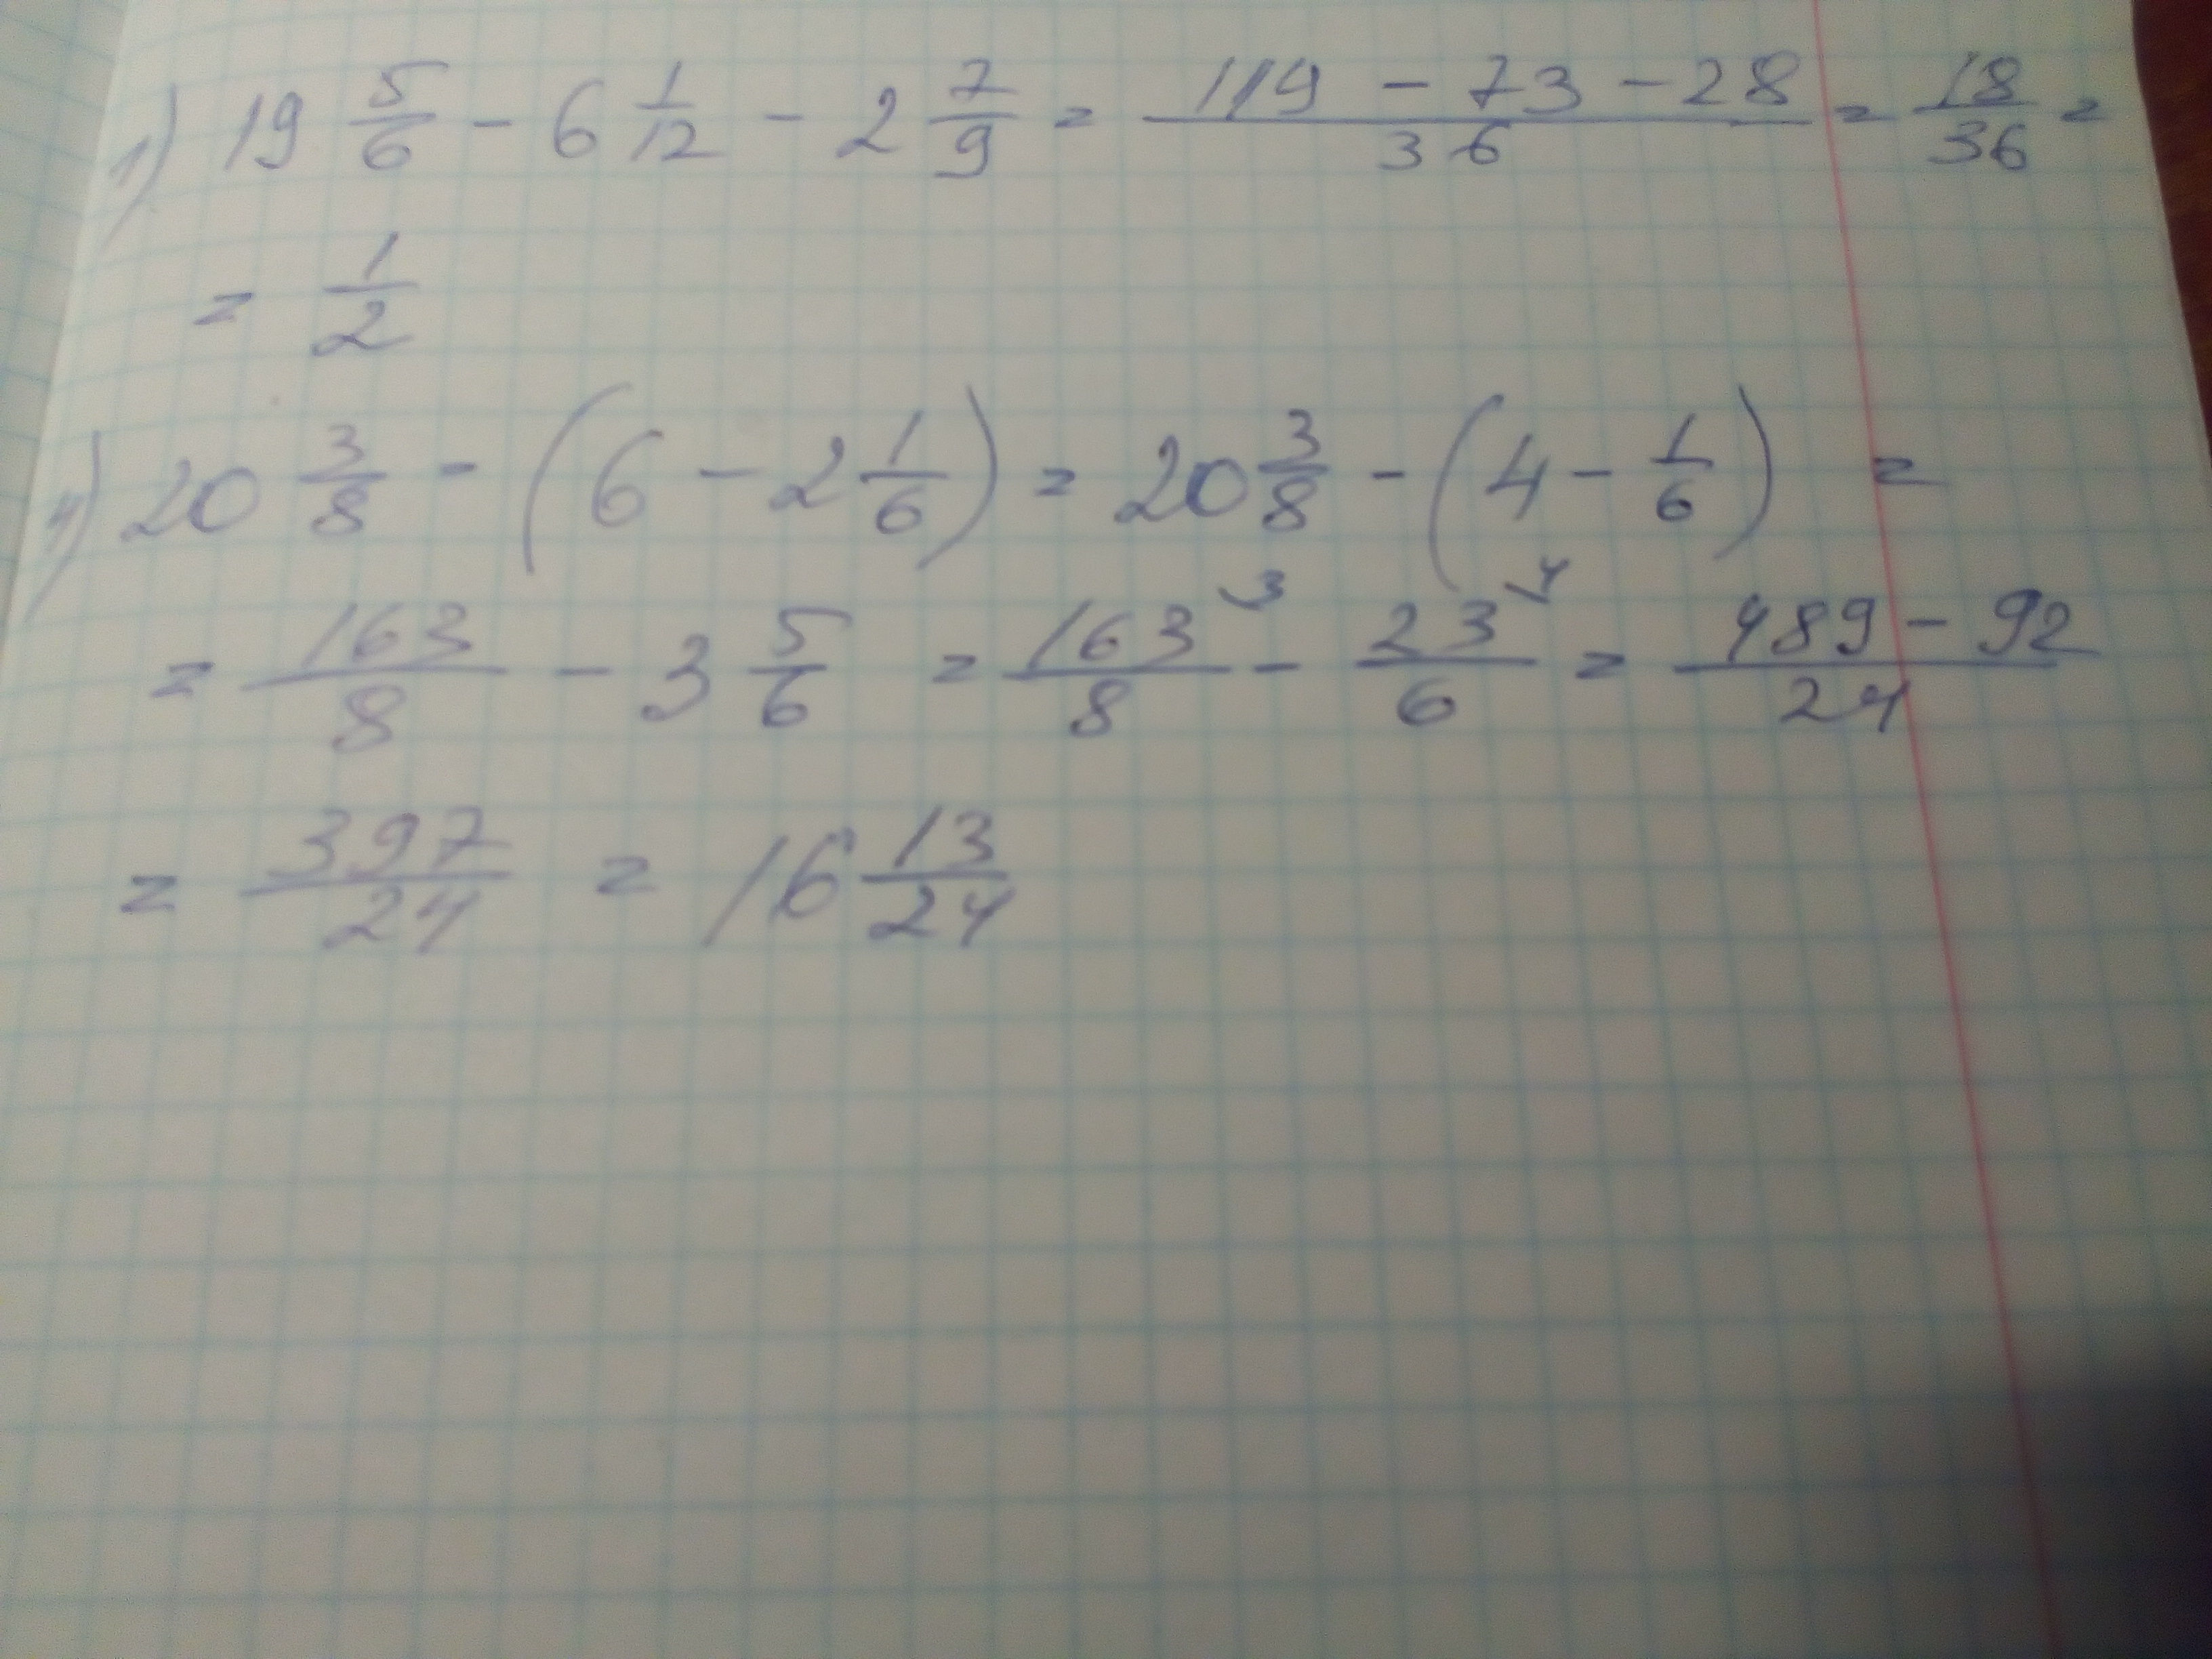 1) 19 5/6 - 6 1/12 - 2 7/9 = (119 - 73 - 28)/36 = 18/36 =
= 1/2
4) 20 3/8 - (6 - 2 1/6) = 20 3/8 - (4 - 1/6) =
= 163/8 - 3 5/6 = 163/8 ³ - 23/6 ⁴ = (489 - 92)/24
= 397/24 = 16 13/24